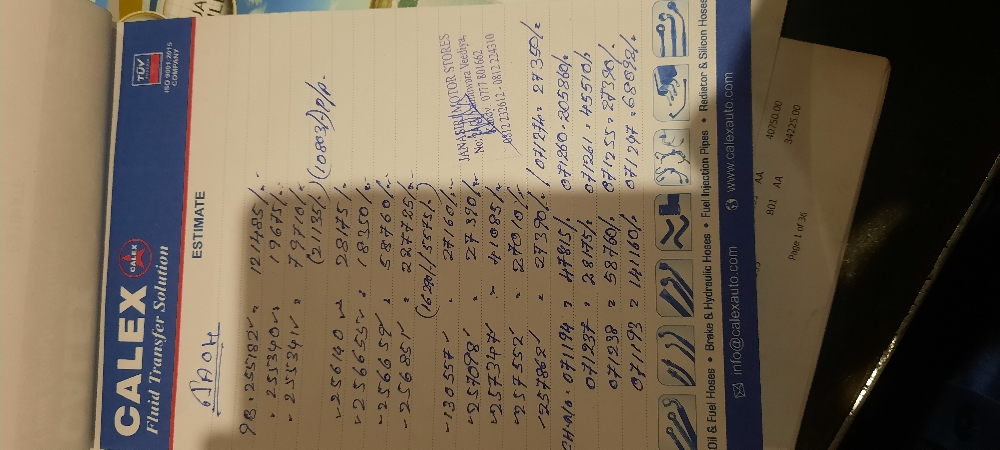 TÜV
ISO 9001:2015
COMPANY
CALEX
CALEX
Fluid Transfer Solution
ESTIMATE
255182 = 121485/=
255340 = 19675/=
255341 = 79710/=
(21135/=) (10803/=) p/p.
256140 = 28175/=
256655 = 18350/=
256659 = 58760/=
256685 = 227785/=
130557 = 27160/=
257098 = 27390/=
257347 = 41085/=
257552 = 27010/=
257862 = 27390/=
071274 = 27350/=
CH.NO. 071194 = 47815/=
071260 = 205860/=
071237 = 28175/=
071261 = 45510/=
071238 = 58760/=
071255 = 27390/=
071193 = 141160/=
071297 = 68092/=
JANASIRI MOTOR STORES
Kandy. 0777 801662
0812 232612 - 0812 224310
Oil & Fuel Hoses • Brake & Hydraulic Hoses • Fuel Injection Pipes • Radiator & Silicon Hoses
info@calexauto.com www.calexauto.com
AA 40750.00
B01 AA 34225.00
Page 1 of 36